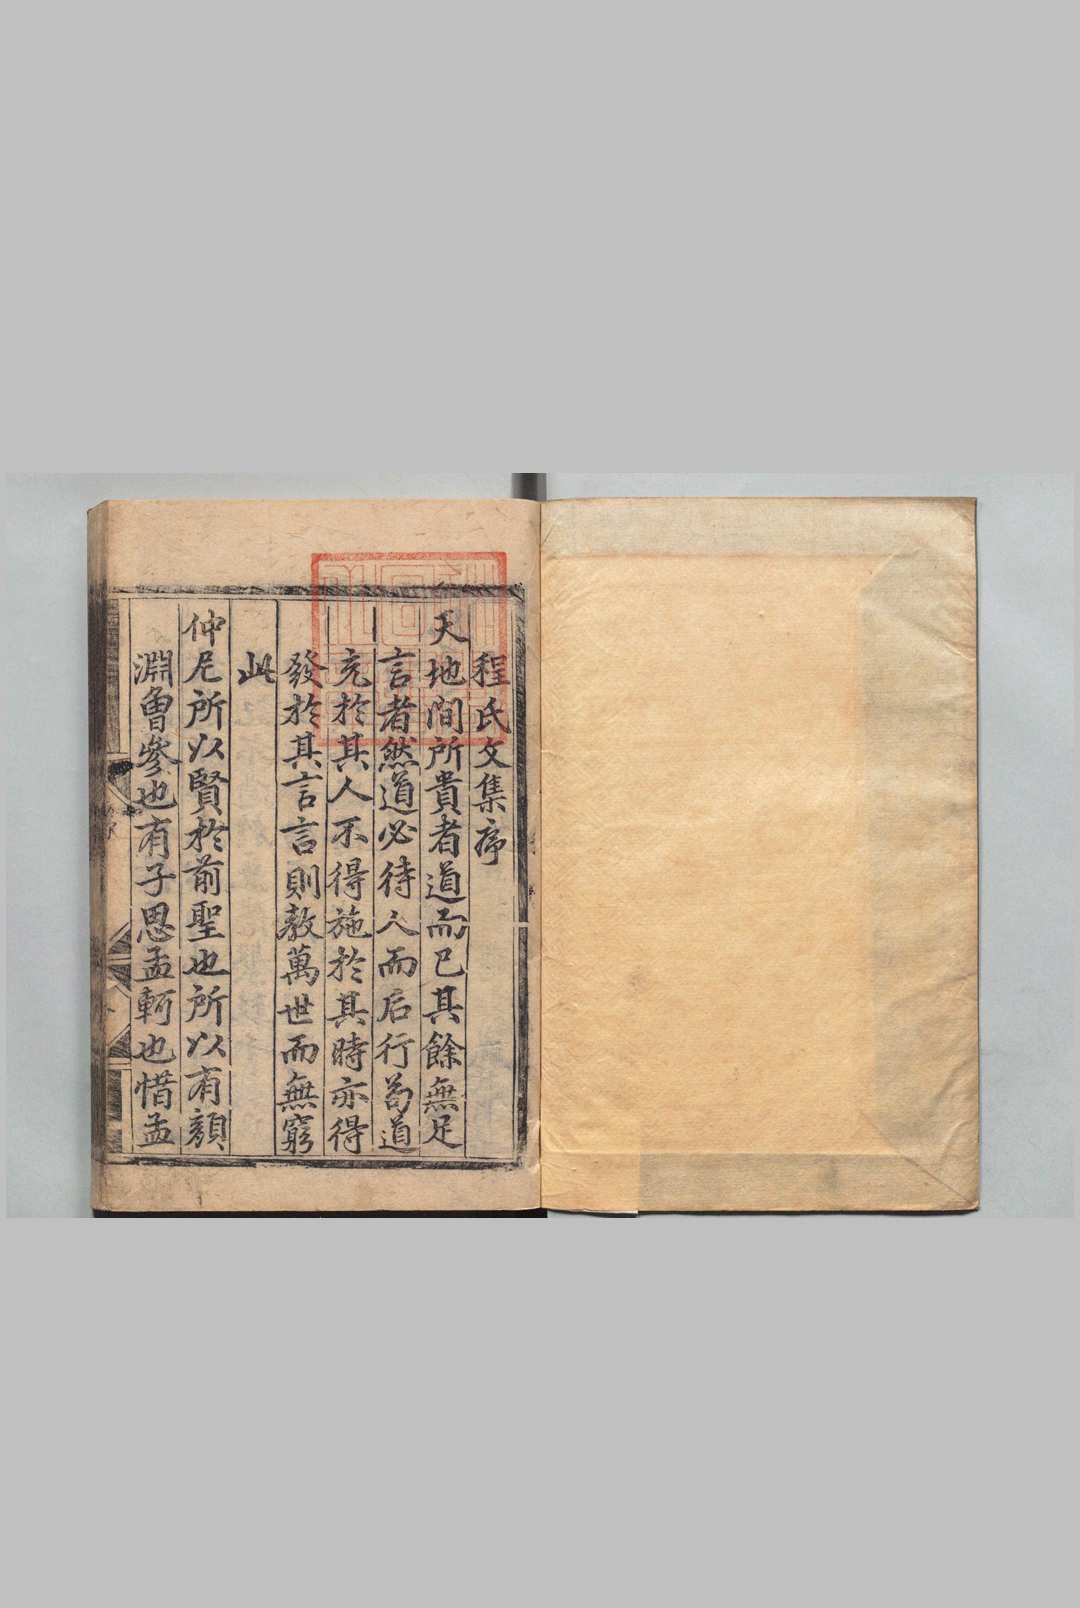 程氏文集序
天地間所貴者道而已其餘無足
言者然道必待人而后行苟道
充於其人不得施於其時亦得
發於其言言則教萬世而無窮
此
仲尼所以賢於前聖也所以有顔
淵曾參也有子思孟軻也惜孟